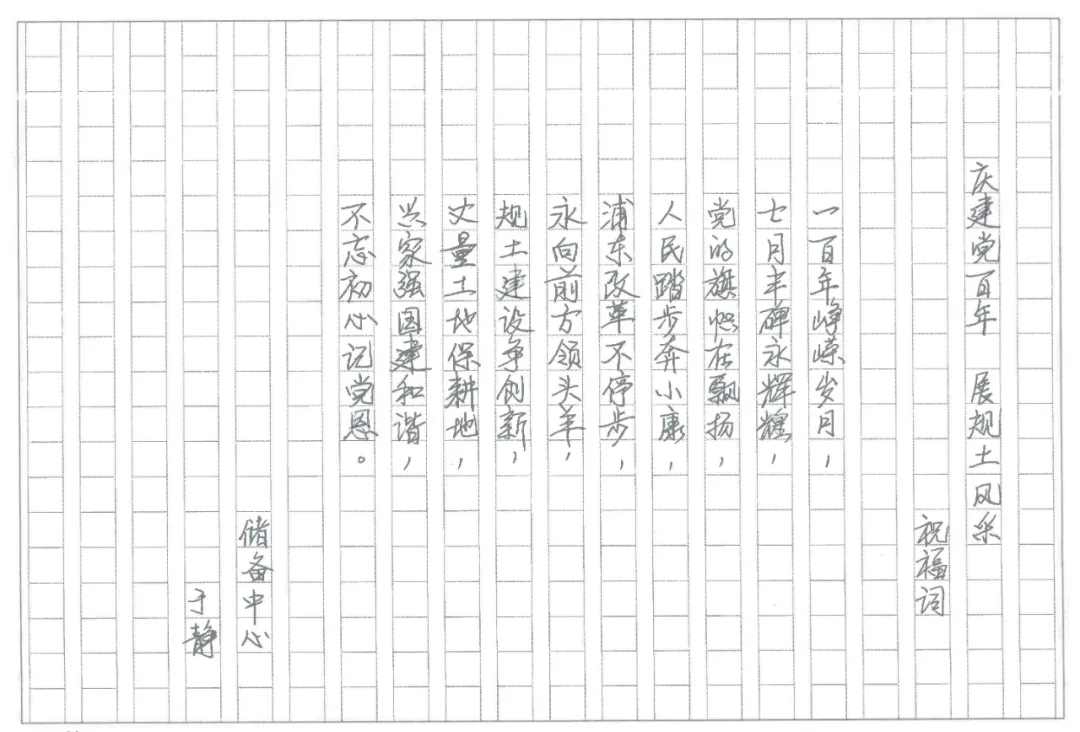 庆建党百年 展规土风采
祝福词
一百年峥嵘岁月，
七月丰碑永辉煌，
党的旗帜在飘扬，
人民踏步奔小康，
浦东改革不停步，
永向前方领头羊，
规土建设争创新，
丈量土地保耕地，
兴家强国建和谐，
不忘初心记党恩。
储备中心
于静